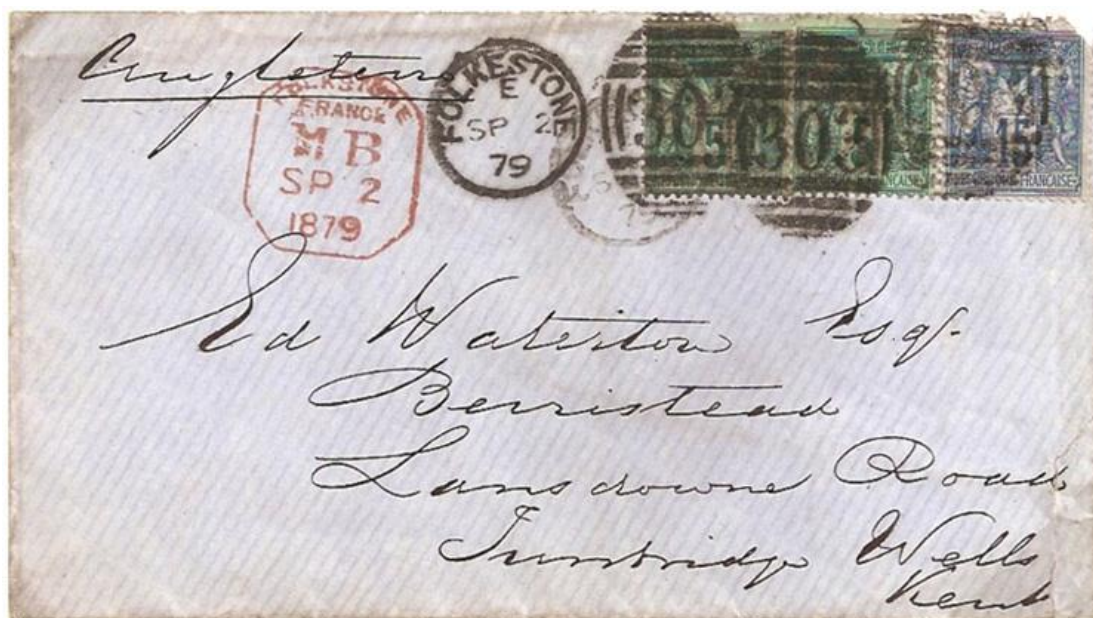 Angleterre
FOLKSTONE
FRANCE
MB
SP 2
1879
FOLKESTONE
E
SP 2
79
303
5
303
15
FRANÇAISE
Ed Waterton Esqr.
Berristead
Lansdowne Road
Tunbridge Wells
Kent